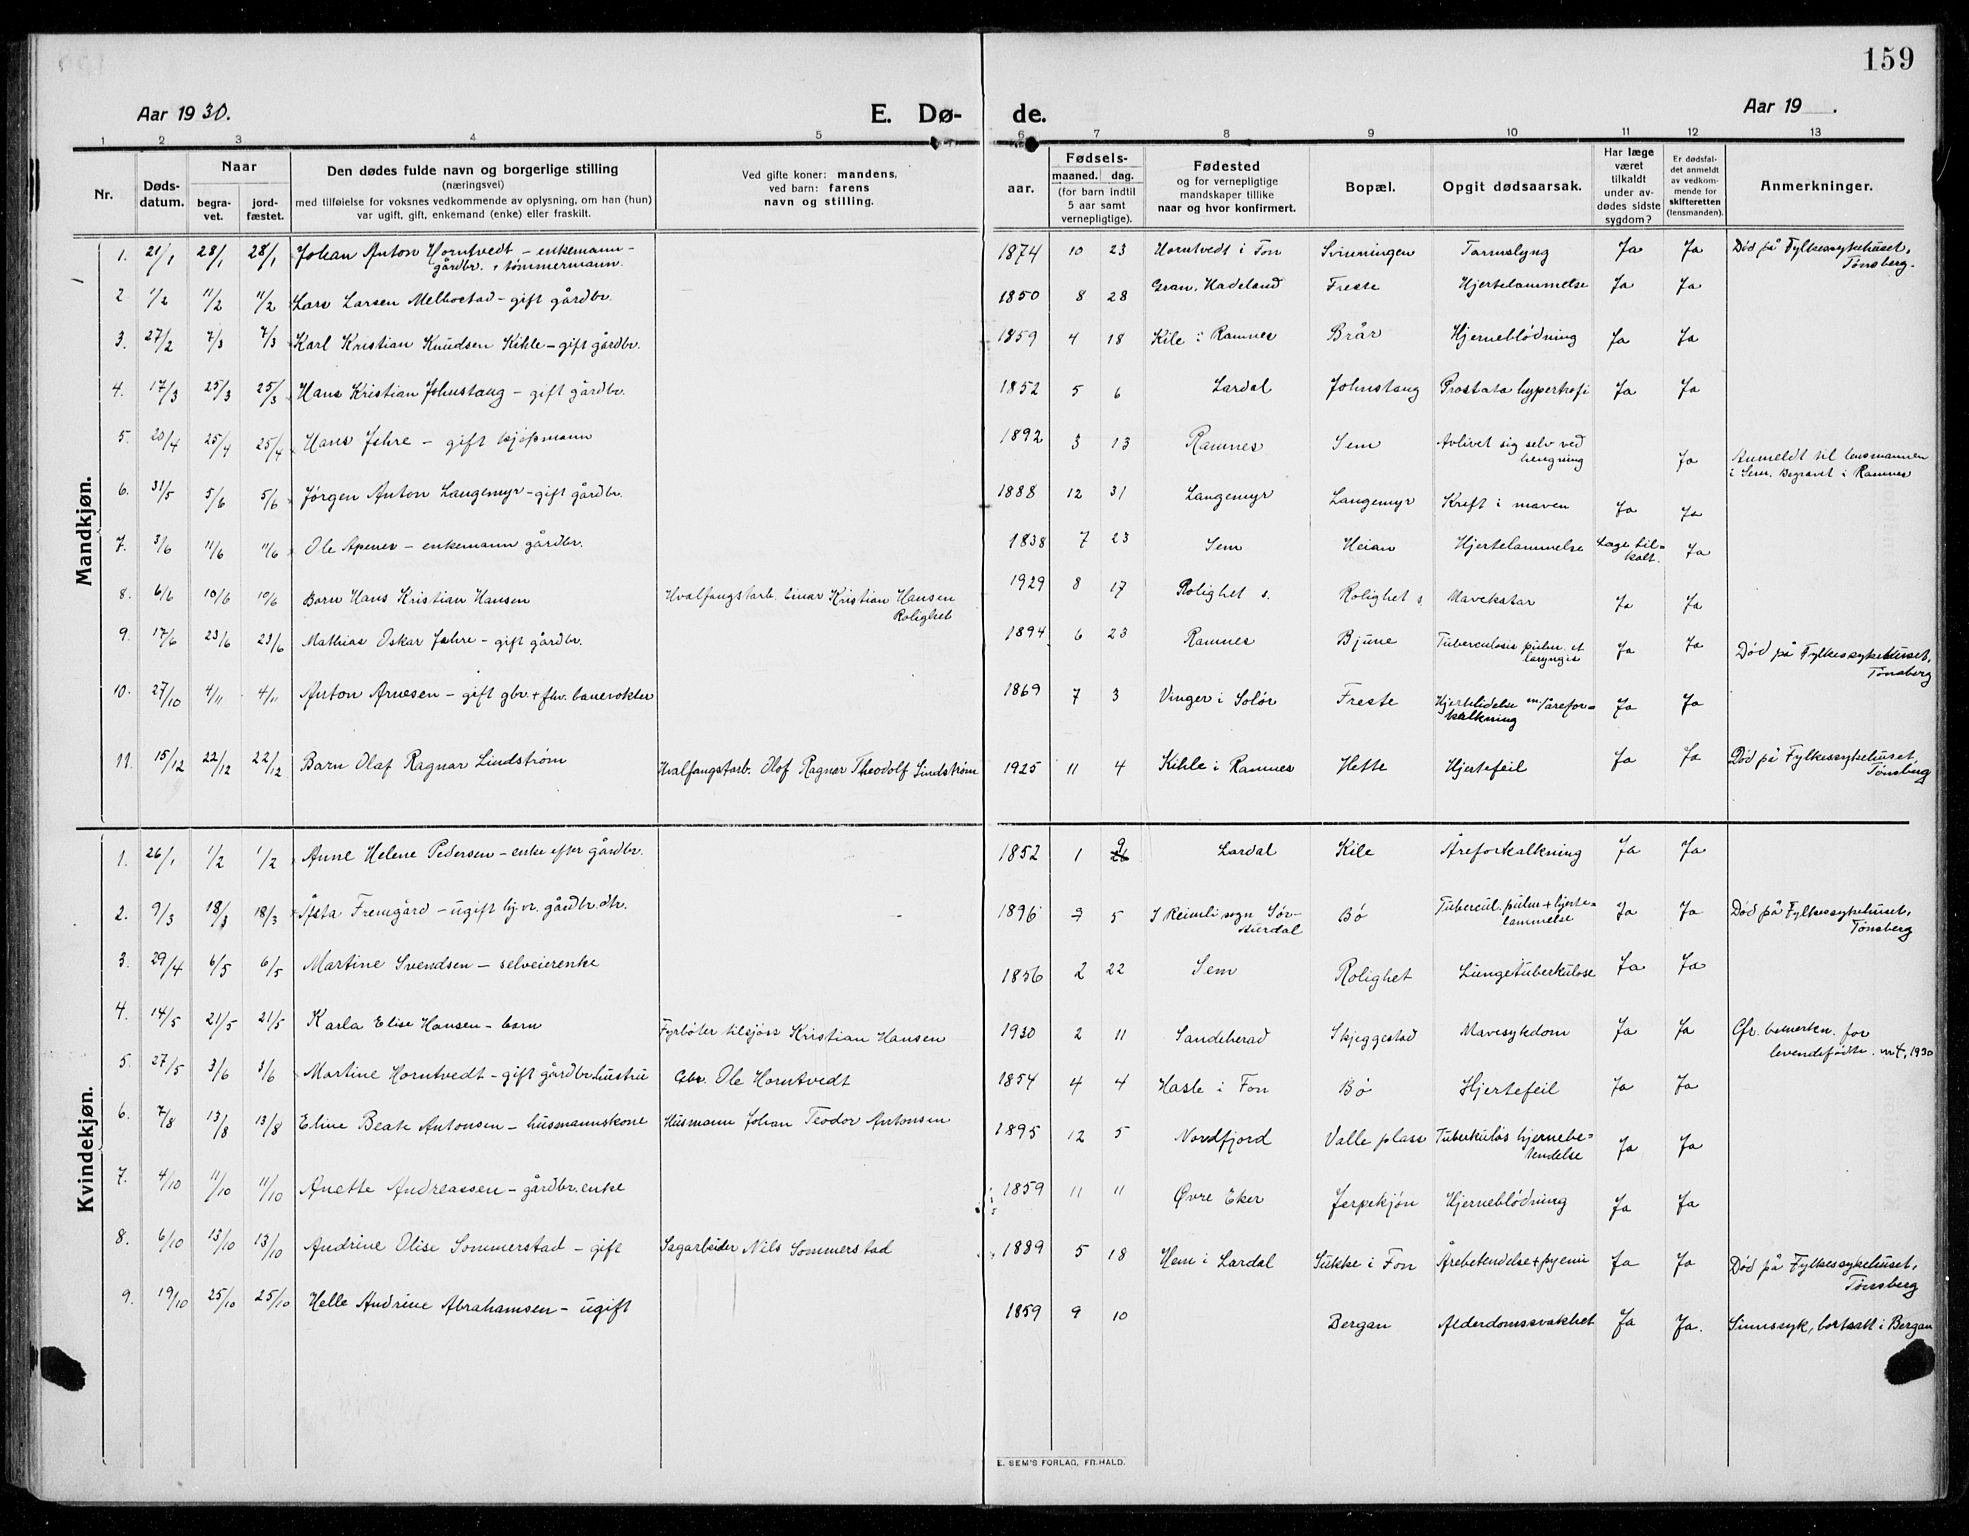 159
Aar 1930. E. Dø- de. Aar 19 .
1 2 3 4 5 6 7 8 9 10 11 12 13
Nr. Dødsdatum. Naar begravet. jordfæstet. Den dødes fulde navn og borgerlige stilling (næringsvei) med tilføielse for voksnes vedkommende av oplysning, om han (hun) var ugift, gift, enkemand (enke) eller fraskilt. Ved gifte koner: mandens, ved barn: farens navn og stilling. Fødsels- aar. maaned. dag. (for barn indtil 5 aar samt vernepligtige). Fødested og for vernepligtige mandskaper tillike naar og hvor konfirmert. Bopæl. Opgit dødsaarsak. Har læge været tilkaldt under avdødes sidste sygdom? Er dødsfaldet anmeldt av vedkommende for skifteretten (lensmanden). Anmerkninger.
Mandkjøn.
1. 21/1 28/1 28/1 Johan Anton Horntvedt - enkemann - gårdbr. + tømmermann. 1874 10 23 Horntvedt i Fon Svinningen Tarmslyng Ja Ja Død på Fylkessykehuset, Tønsberg.
2. 1/2 11/2 11/2 Lars Larsen Melbostad - gift gårdbr. 1850 8 28 Gran, Hadeland Freste Hjertelammelse Ja Ja
3. 27/2 7/3 7/3 Karl Kristian Knudsen Kihle - gift gårdbr. 1859 4 18 Kile i Ramnes Brår Hjerneblødning Ja Ja
4. 17/3 25/3 25/3 Hans Kristian Johnstang - gift gårdbr. 1852 5 6 Lardal Johnstang Prostata hypertrofi Ja Ja
5. 20/4 25/4 25/4 Hans Jahre - gift kjøpmann 1892 3 13 Ramnes Sem Avlivet sig selv ved hengning Ja Anmeldt til lensmannen i Sem. Begravet i Ramnes
6. 31/5 5/6 5/6 Jørgen Anton Langemyr - gift gårdbr. 1888 12 31 Langemyr Langemyr Kreft i maven Ja Ja
7. 3/6 11/6 11/6 Ole Apenes - enkemann gårdbr. 1838 7 23 Sem Heian Hjertelammelse Læge tilkalt. Ja
8. 6/6 10/6 10/6 Barn Hans Kristian Hansen Hvalfangstarb. Einar Kristian Hansen Rolighet 1929 8 17 Rolighet s. Rolighet s. Mavekatar Ja Ja
9. 17/6 23/6 23/6 Mathias Oskar Jahre - gift gårdbr. 1894 6 23 Ramnes Bjune Tuberculosis pulm. et laryngis Ja Ja Død på Fylkessykehuset, Tønsberg
10. 27/10 4/11 4/11 Anton Arnesen - gift gbr. + fhv. banevokter 1869 7 3 Vinger i Solør Freste Hjertelidelse m/åreforkalkning Ja Ja
11. 15/12 22/12 22/12 Barn Olaf Ragnar Lindstrøm Hvalfangstarb. Olof Ragnar Theodolf Lindstrøm 1925 11 4 Kihle i Ramnes Hette Hjertefeil Ja Ja Død på Fylkessykehuset, Tønsberg
Kvindekjøn.
1. 26/1 1/2 1/2 Anne Helene Pedersen - enke efter gårdbr. 1852 1 9 26 Lardal Kile Åreforkalkning Ja Ja
2. 9/3 18/3 18/3 Åsta Fremgård - ugift hj.vr. gårdbr.dtr. 1896 7 5 I Reinli sogn Sør-Aurdal Bø Tubercul. pulm + hjertelammelse Ja Ja Død på Fylkessykehuset, Tønsberg
3. 29/4 6/5 6/5 Martine Svendsen - selveierenke 1856 2 22 Sem Rolighet Lungetuberkulose Ja Ja
4. 14/5 21/5 21/5 Karla Elise Hansen - barn Fyrbøter tilsjøss Kristian Hansen 1930 2 11 Sandeherad Skjeggestad Mavesykdom Ja Ja Cfr. bemerkn. for levendefødte. nr 4, 1930
5. 27/5 3/6 3/6 Martine Horntvedt - gift gårdbr.hustru Gbr. Ole Horntvedt 1854 4 4 Hasle i Fon Bø Hjertefeil Ja Ja
6. 7/8 13/8 13/8 Eline Beate Antonsen - husmannskone Husmann Johan Teodor Antonsen 1895 12 5 Nordfjord Valle plass Tuberkuløs hjernebetendelse Ja Ja
7. 4/10 11/10 11/10 Anette Andreassen - gårdbr.enke 1859 11 11 Øvre Eker Jerpekjøn Hjerneblødning Ja Ja
8. 6/10 13/10 13/10 Andrine Olise Sommerstad - gift Sagarbeider Nils Sommerstad 1889 5 18 Hem i Lardal Sukke i Fon Årebetendelse + pyemi Ja Ja Død på Fylkessykehuset, Tønsberg
9. 19/10 25/10 25/10 Helle Andrine Abrahamsen - ugift 1859 9 10 Bergan Alderdomssvakhet Ja Ja. Sinnssyk, bortsatt i Bergan
E. SEM'S FORLAG, FR.HALD.